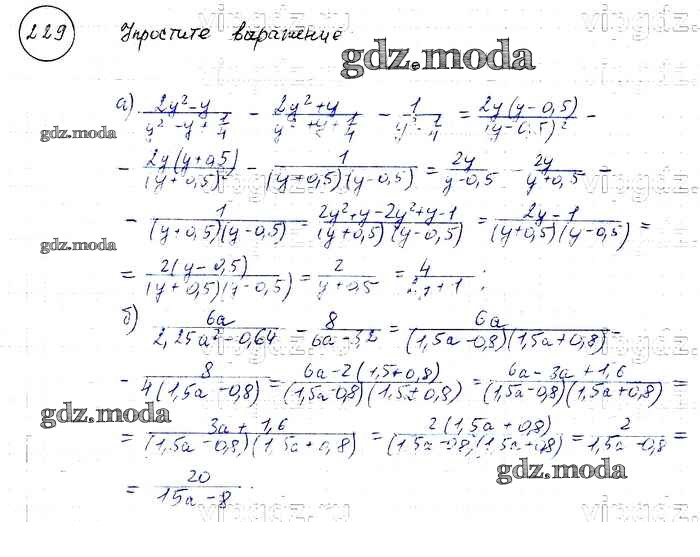 229 Упростите выражение
gdz.moda
а) (2y²-y)/(y²-y+1/4) - (2y²+y)/(y²+y+1/4) - 1/(y²-1/4) = 2y(y-0,5)/(y-0,5)² -
gdz.moda
- 2y(y+0,5)/(y+0,5)² - 1/((y+0,5)(y-0,5)) = 2y/(y-0,5) - 2y/(y+0,5) -
- 1/((y+0,5)(y-0,5)) = (2y²+y-2y²+y-1)/((y+0,5)(y-0,5)) = (2y-1)/((y+0,5)(y-0,5)) =
gdz.moda
= 2(y-0,5)/((y+0,5)(y-0,5)) = 2/(y+0,5) = 4/(2y+1);
б) 6a/(2,25a²-0,64) - 8/(6a-3,2) = 6a/((1,5a-0,8)(1,5a+0,8)) -
- 8/(4(1,5a-0,8)) = (6a-2(1,5+0,8))/((1,5a-0,8)(1,5+0,8)) = (6a-3a+1,6)/((1,5a-0,8)(1,5a+0,8)) =
gdz.moda
= (3a+1,6)/((1,5a-0,8)(1,5a+0,8)) = 2(1,5a+0,8)/((1,5a-0,8)(1,5a+0,8)) = 2/(1,5a-0,8) =
gdz.moda
= 20/(15a-8)